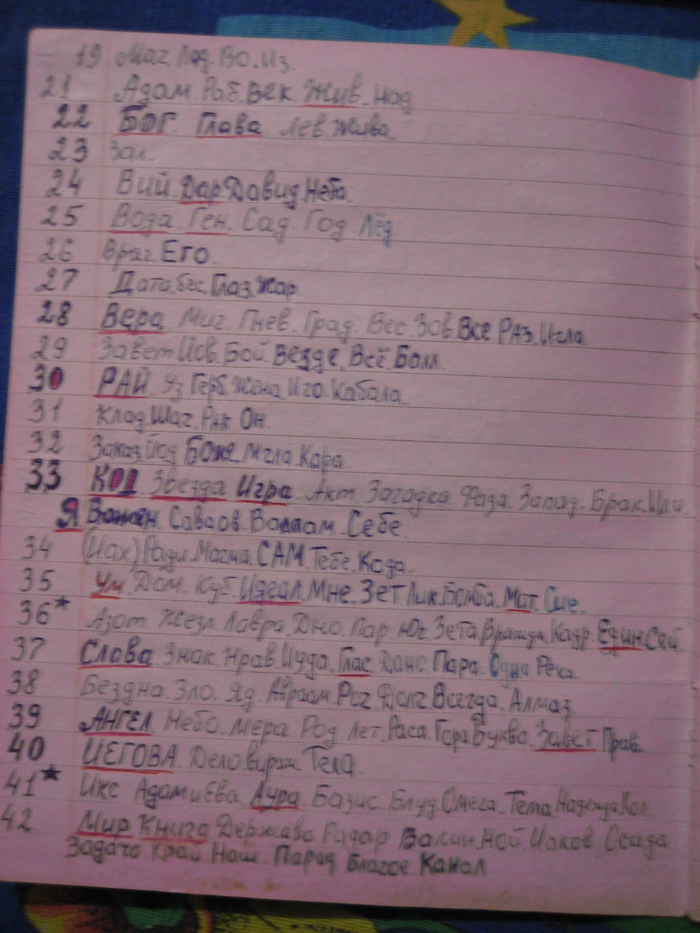 19 Маг. Лад. Во. Из.
21 Адам. Раб. Век. Жив. Над
22 БОГ. Глава. Лев. Жива.
23 Зал.
24 Вий. Дар. Давид. Неба.
25 Вода. Ген. Сад. Год. Лёд.
26 Враг. Его.
27 Дата. Бес. Глаз. Жар.
28 Вера. Миг. Гнев. Град. Вес. Зов. Все. Раз. Игла
29 Завет. Бой. Везде. Всё. Балл.
30 РАЙ. Яз. Герб. Жена. Иго. Кабала.
31 Клад. Шаг. Рак. Он.
32 Заказ. Йод. Боже. Мгла. Кара.
33 КОД. Звезда. Игра. Акт. Загадка. Фаза. Запад. Брак. Или.
Я Саваоф. Валаам. Себе.
34 (Иах) Ради. Магма. САМ. Тебе. Кода.
35 Ум. Дом. Куб. Идеал. Мне. Зет. Лик. Бомба. Мат. Сие.
36* Азот. Жезл. Лавра. Дно. Пар. Юг. Зета. Вражда. Кадр. Един. Сей.
37 Слова. Знак. Нрав. Иуда. Глас. Данс. Пара. Одна. Река.
38 Бездна. Зло. Яд. Авраам. Рог. Долг. Всегда. Алмаз
39 АНГЕЛ. Небо. Мера. Род. Лет. Раса. Гора. Буква. Завет. Прав.
40 ИЕГОВА. Дело. Вираж. Тела.
41* Икс Адамиева. Аура. Базис. Блуд. Омега. Тема. Надежда. Кол.
42 Мир Книга Держава. Радар Ной. Иаков. Осада
Задача Край Наш. Парад Благое Канал